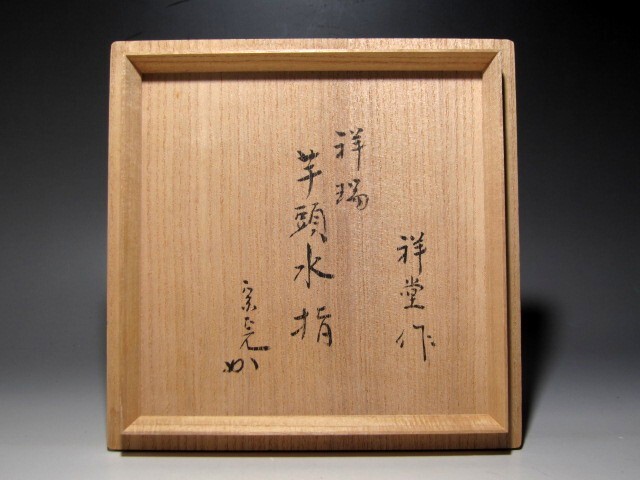 祥堂作
祥瑞
芋頭水指